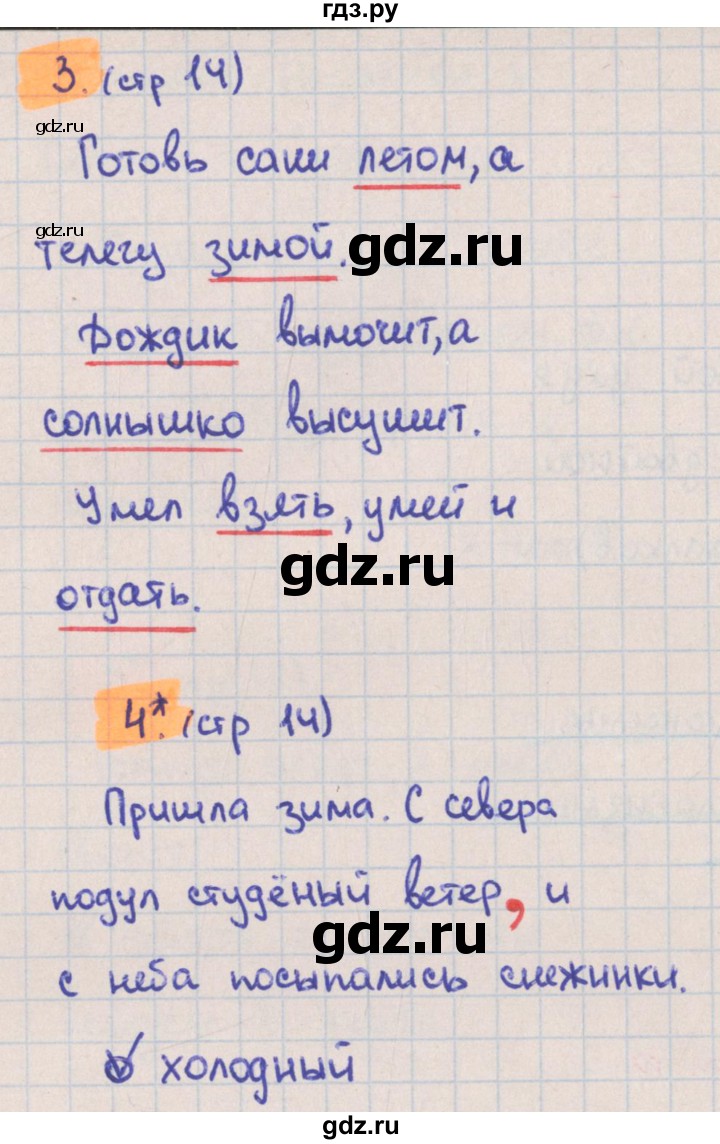 гдз.ру
3. (стр 14)
gdz.ru
Готовь сани летом, а
gdz.ru
телегу зимой.
gdz.ru
Дождик вымочит, а
солнышко высушит.
Умел взять, умей и
gdz.ru
отдать.
4*. (стр 14)
Пришла зима. С севера
подул студёный ветер, и
gdz.ru
с неба посыпались снежинки.
✓ холодный
gdz.ru